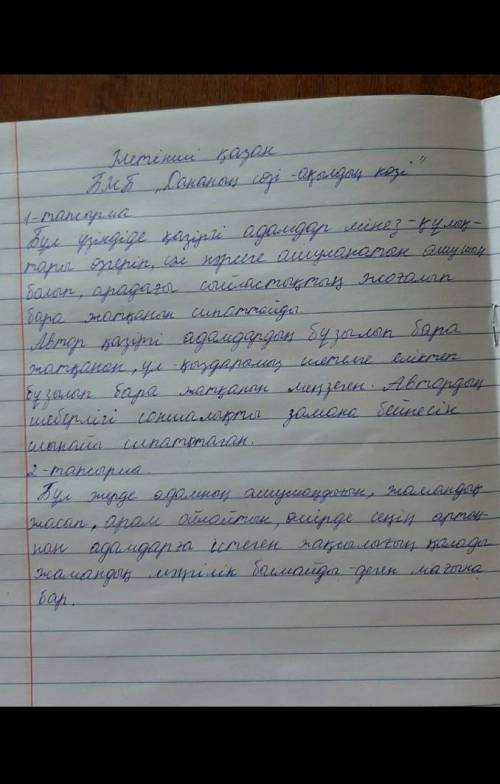 Жетінші қазан
БМБ „Дананың сөзі -ақылдың көзі"
1-тапсырма
Бұл үзіндіде қазіргі адамдар мінез-құлық-
тары өзгеріп, сәл нәрсеге ашуланатын ашушаң
болып, арадағы сыйластықтың жоғалып
бара жатқанын сипаттайды.
Автор қазіргі адамдардың бұзылып бара
жатқанын, ұл-қыздарымыз шетелге еліктеп
бұзылып бара жатқанын меңзеген. Автордың
шеберлігі соншалықты замана бейнесін
шынайы сипаттаған.
2-тапсырма.
Бұл жерде адамның ашушаңдығын, жамандық
жасап, арам ойлайтын, өмірде сенің артың-
нан адамдарға істеген жақсылығың қалады
жамандық мәңгілік болмайды деген мағына
бар.